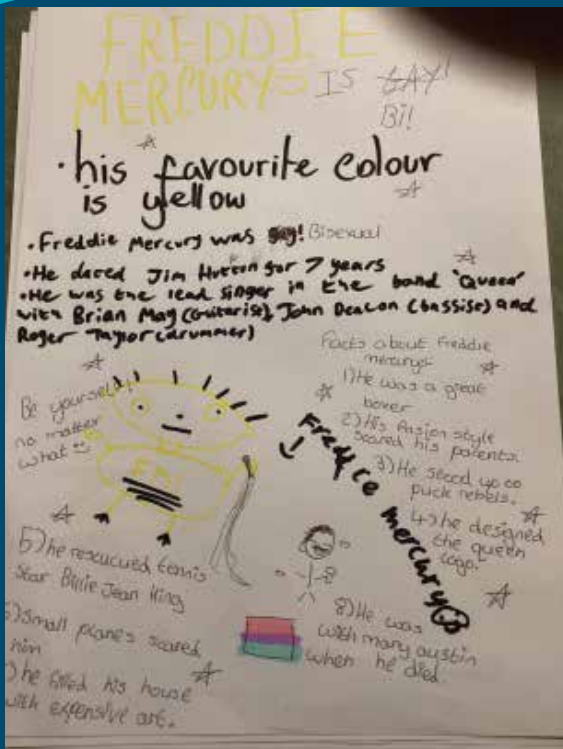 FREDDIE
MERCURY=
IS GAY!
Bi!
• his favourite colour
is yellow
• Freddie Mercury was gay! Bisexual
• He dated Jim Hutton for 7 years
• He was the lead singer in the band 'Queen'
with Brian May (Guitarist), John Deacon (bassist) and
Roger Taylor (drummer)
Facts about Freddie
mercury:
1) He was a great
boxer
2) His fasion style
scared his parents.
3) He stood up to
puck rebels.
4) he designed
the queen
logo.
Be yourself!
no matter
what
Freddie mercury
5) he rescucued tennis
star Billie Jean King
6) Small planes scared
him
7) he filled his house
with expensive art.
8) He was
with mary austin
when he died.